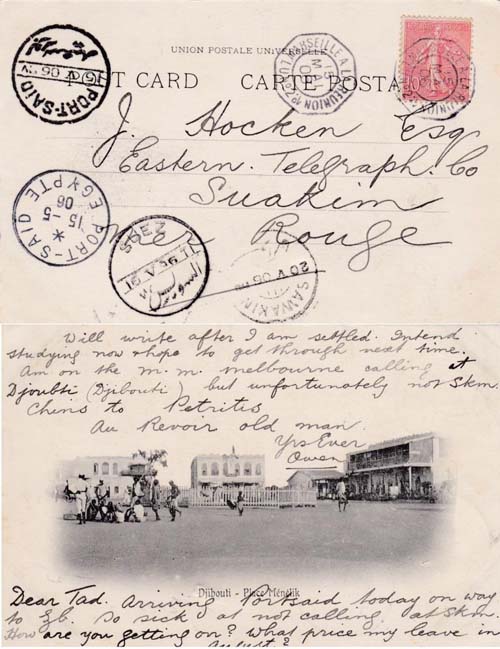 UNION POSTALE UNIVERSELLE
POST CARD CARTE POSTALE
MARSEILLE A LA REUNION
PORT-SAID
PORT-SAID
15-5
06
EGYPTE
SUEZ
20 V 06
SAWAKIN
J. Hocken Esq
Eastern Telegraph. Co
Suakim
Mer Rouge
Will write after I am settled. Intend
studying now & hope to get through next time.
Am on the m.m. melbourne calling at
Djoubti (Djibouti) but unfortunately not Skm
Chins to Petritis
Au Revoir old man.
Yrs Ever
Owen
Djibouti - Place Ménélik
Dear Tad. Arriving Portsaid today on way
to Zb. So sick at not calling at Skm.
How are you getting on? What price my leave in
August?